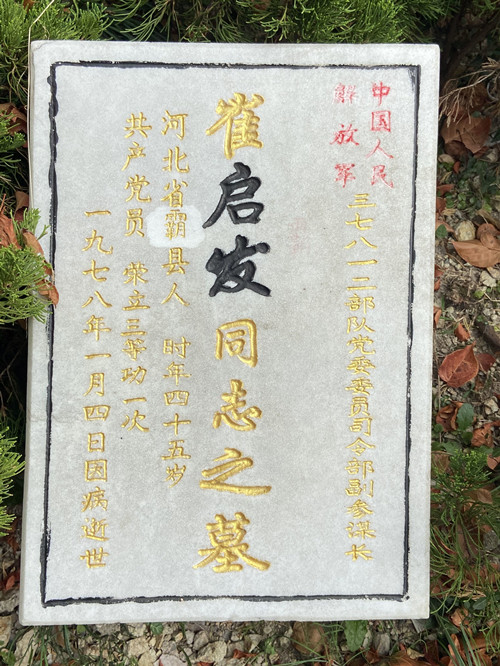 中国人民
解放军
三七八一二部队党委委员司令部副参谋长
崔启发同志之墓
河北省霸县人 时年四十五岁
共产党员 荣立三等功一次
一九七八年一月四日因病逝世